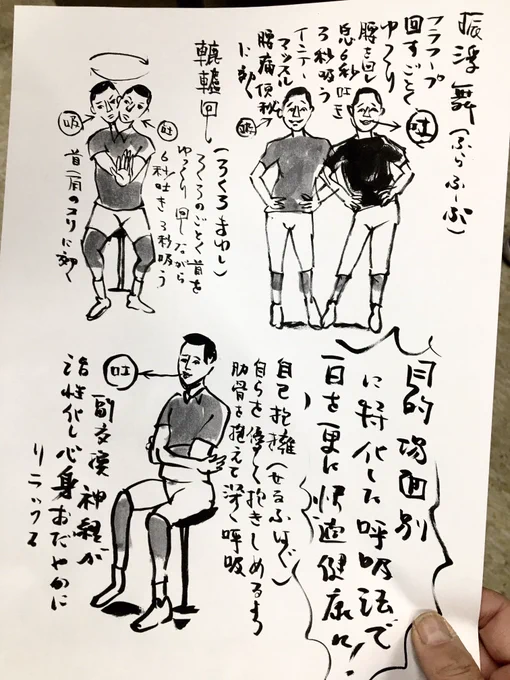 振浮舞(ふらふーぷ)
フラフープ
回すごとく
ゆっくり
腰を回し
息6秒吐き
3秒吸う
インナー
マッスルと
腰痛便秘
に効く
吸
吐
轆轤回し(ろくろまわし)
ろくろのごとく首を
ゆっくり回しながら
6秒吐き3秒吸う
首肩のコリに効く
吸
吐
目的場面別
に特化した呼吸法で
一日を更に快適健康に!
自己抱擁(せるふはぐ)
自らを優しく抱きしめるよう
肋骨を抱えて深く呼吸
吐
副交感神経が
活性化し心身おだやかに
リラックス